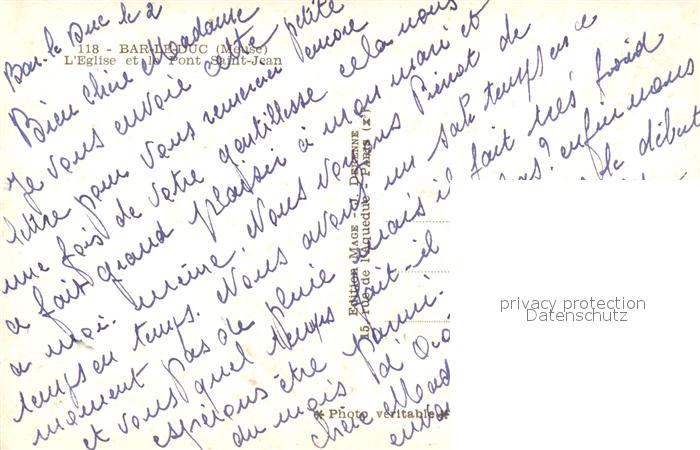 Bar-le Duc le 2
118 - BAR-LE-DUC (Meuse)
L'Eglise et le Pont Saint-Jean
Bien chère Madame
Je vous envoie cette petite
lettre pour vous remercier encore
une fois de votre gentillesse cela nous
a fait grand plaisir à mon mari et
a moi même. Nous voyons de
temps en temps. Nous avons un sale temps en ce
moment pas de pluie mais il fait très froid
et vous quel temps fait-il enfin nous
espérons être parmi le début
du mois d'
chère Mad
Edition MAGE - J. DERENNE
15, rue de l'Aqueduc - PARIS (Xe)
Photo véritable
privacy protection
Datenschutz